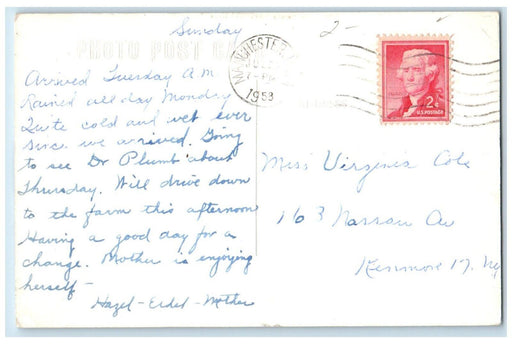 Sunday
2-
PHOTO POST CARD
MANCHESTER
1958
2¢
U.S. POSTAGE
Arrived Tuesday A.M
Rained all day Monday
Quite cold and wet ever
since we arrived. Going
to see Dr Plumb about
Thursday. Will drive down
to the farm this afternoon
Having a good day for a
change. Mother is enjoying
herself-
Hazel- -Mother
Miss Virginia Cole
163 Nassau Av
Kenmore 17. NY